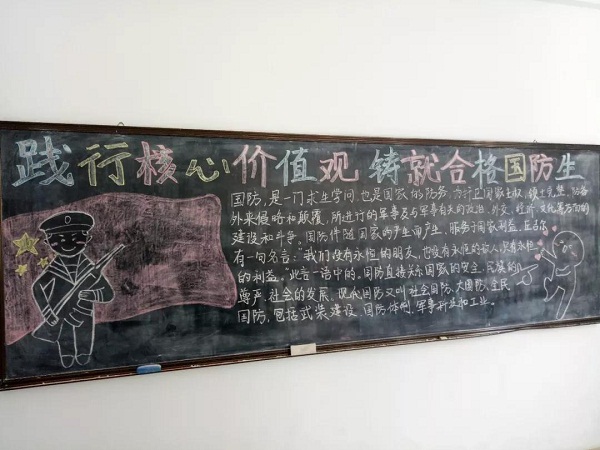 践行核心价值观 铸就合格国防生
国防,是一门求生学问,也是国家的防务,为捍卫国家主权、领土完整,防备
外来侵略和颠覆,所进行的军事及与军事有关的政治、外交、经济、文化等方面的
建设和斗争。国防伴随国家的产生而产生,服务于国家利益,丘吉尔
有一句名言:"我们没有永恒的朋友,也没有永恒的敌人,只有永恒
的利益。"此言一语中的,国防直接关系国家的安全、民族的
尊严、社会的发展。现代国防又叫社会国防、大国防、全民
国防,包括武装建设、国防体制、军事科技和工业。